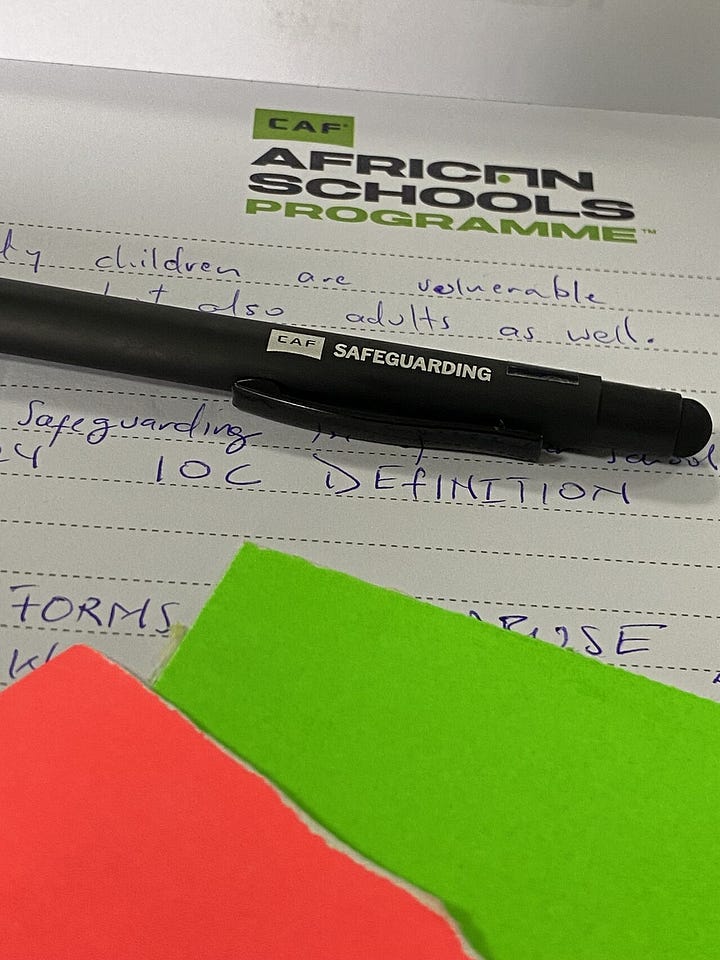 CAF
AFRICAN
SCHOOLS
PROGRAMME™
children are vulnerable
also adults as well.
CAF SAFEGUARDING
Safeguarding
IOC DEfINITION
FORMS